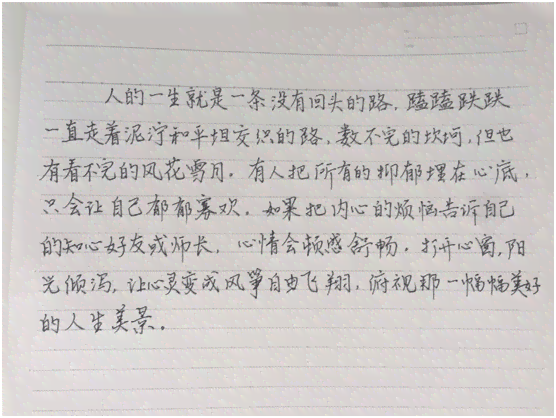 人的一生就是一条没有回头的路，瞌瞌跌跌
一直走着泥泞和平坦交织的路，数不完的坎坷，但也
有看不完的风花雪月。有人把所有的抑郁埋在心底，
只会让自己郁郁寡欢。如果把内心的烦恼告诉自己
的知心好友或师长，心情会顿感舒畅。打开心窗，阳
光倾泻，让心灵变成风筝自由飞翔，俯视那一幅幅美好
的人生美景。